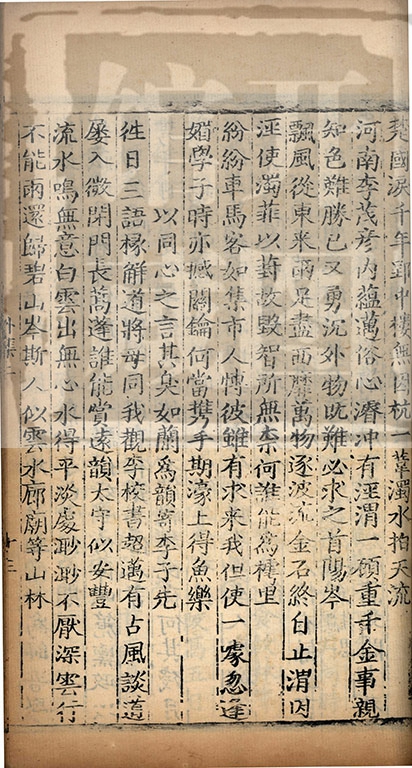 國淚千年郢中樓無因杭一葦濁水拍天流
河南李茂彥內蘊邁俗心濬沖有涇渭一顧重千金事親
知色難勝已又勇沉外物既難必求之首陽岑
飄風從東來雨足盡西靡萬物逐波流金石終自止渭因
涇使濁菲以葑故毀智所無柰何誰能為樗里
紛紛車馬客如集市人博彼雖有求來我但使一噱忽逢
媚學子時亦撼關鑰何當攜手期濠上得魚樂
以同心之言其臭如蘭為韻寄李子先
徃日三語掾解道將毋同我觀李校書超邁有古風談道
屢入微閉門長蒿蓬誰能賞遠韻太守似安豐
流水鳴無意白雲出無心水得平淡處渺渺不厭深雲行
不能雨還歸碧山岑斯人似雲水廊廟等山林